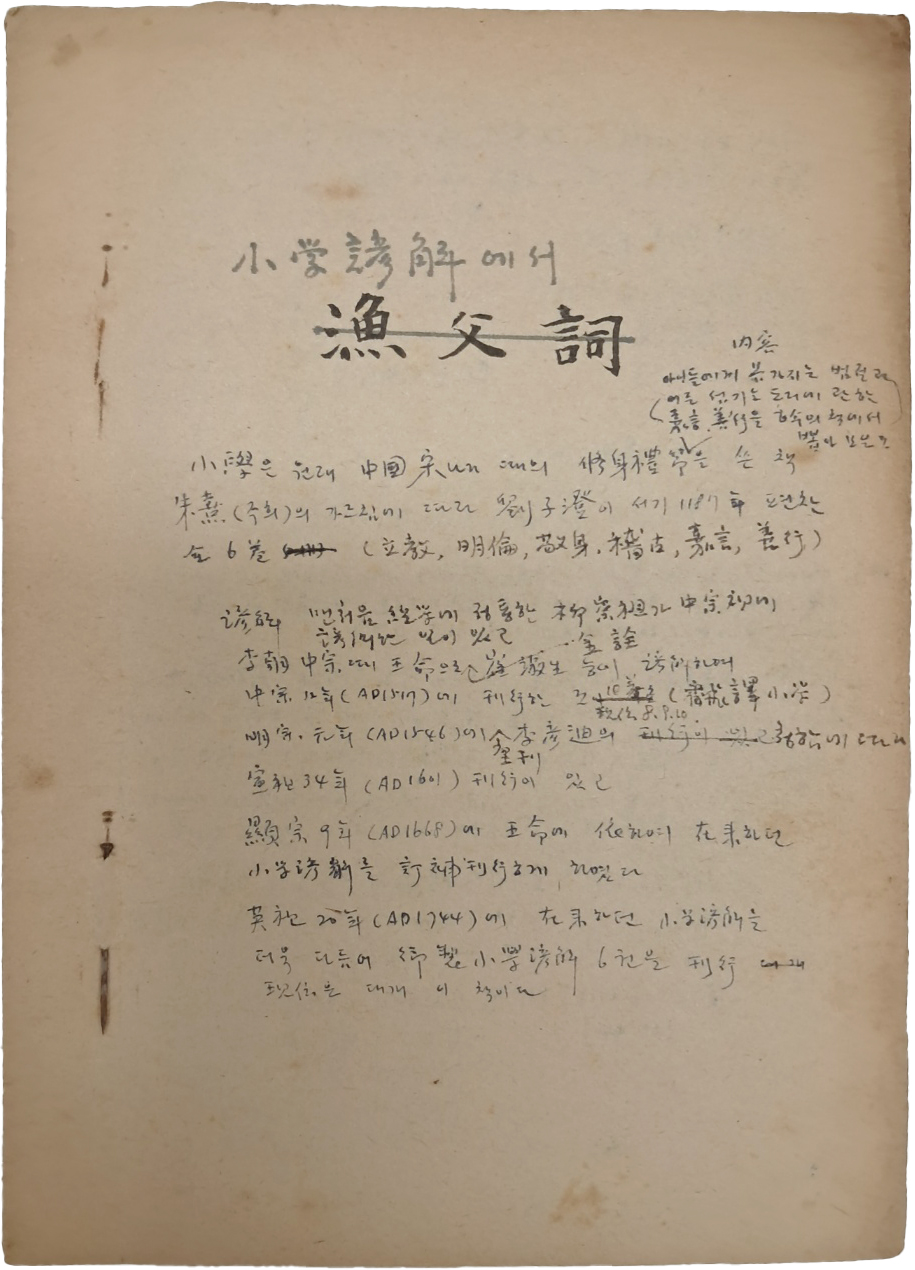 小学諺解에서
漁父詞
内容
아이들에게 몸가지는 범절과
어른 섬기는 도리에 관한
嘉言 善行을 여러 책에서
뽑아 모은 것
小學은 원래 中国 宋나라 때의 修身禮節을 쓴 책
朱熹(주희)의 가르침에 따라 劉子澄이 서기 1187年 편찬
全 6巻 (立教, 明倫, 敬身, 稽古, 嘉言, 善行)
諺解 맨처음 経学에 정통한 柳崇祖가 中宗初에
諺解한 일이 있고
金詮
李朝 中宗때 王命으로 崔淑生 등이 諺解하여
中宗 12年(AD1517)에 刊行한 것 10巻 (飜譯小学)
現在 8.9.10.
明宗 元年 (AD1546)에 李彦迪의 刊行이 있고 에 따라
宣祖 34年 (AD1601) 刊行이 있고
顯宗 9年 (AD1668)에 王命에 依하여 在来하던
小学諺解를 訂補刊行하게 하였다
英祖 20年(AD1744)에 在来하던 小学諺解를
더욱 다듬어 御製小學諺解 6권을 刊行
現在는 대개 이 책이다